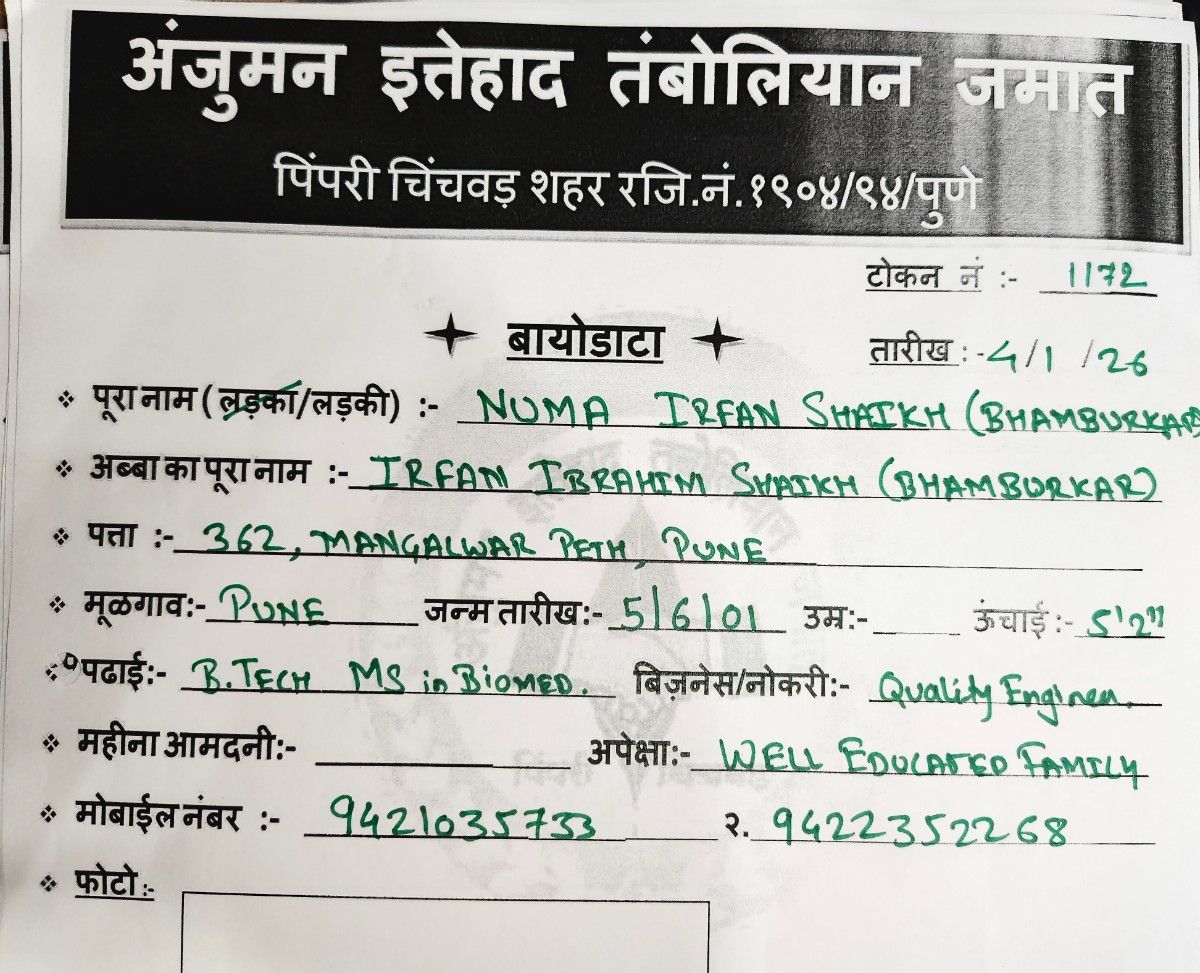 अंजुमन इत्तेहाद तंबोलियान जमात
पिंपरी चिंचवड़ शहर रजि.नं.१९०४/९४/पुणे
टोकन नं :- 1172
बायोडाटा
तारीख :- 4/1/26
पूरा नाम (लड़का/लड़की) :- NUMA IRFAN SHAIKH (BHAMBURKAR)
अब्बा का पूरा नाम :- IRFAN IBRAHIM SHAIKH (BHAMBURKAR)
पत्ता :- 362, MANGALWAR PETH, PUNE
मूळगाव:- PUNE जन्म तारीख:- 5/6/01 उम्र:- ऊंचाई :- 5'2"
पढाई:- B.TECH MS in BIOMED. बिज़नेस/नोकरी:- Quality Engineer.
महीना आमदनी:- अपेक्षा:- WELL EDUCATED FAMILY
मोबाईल नंबर :- 9421035733 २. 9422352268
फोटो :-